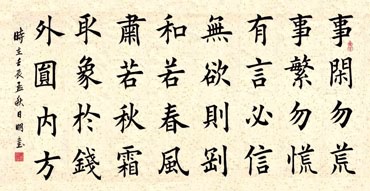 事閑勿荒
事繁勿慌
有言必信
無欲則剛
和若春風
肅若秋霜
取象於錢
外圓内方
時在壬辰孟秋月明